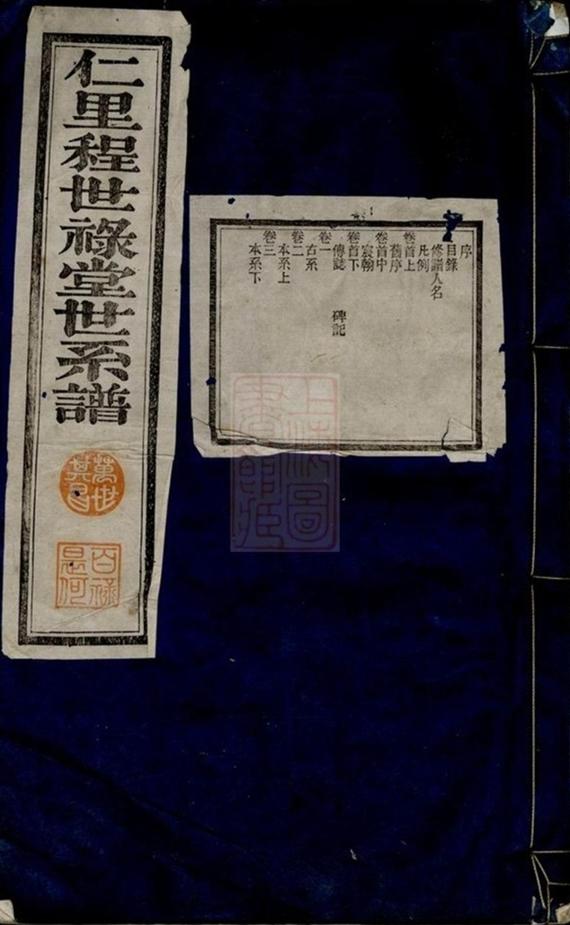 仁里程世祿堂世系譜
萬世其昌
百祿是何
序
目錄
修譜人名
凡例
卷首上
舊序
卷首中
宸翰
卷首下
傳誌 碑記
卷一
右系
卷二
本系上
卷三
本系下